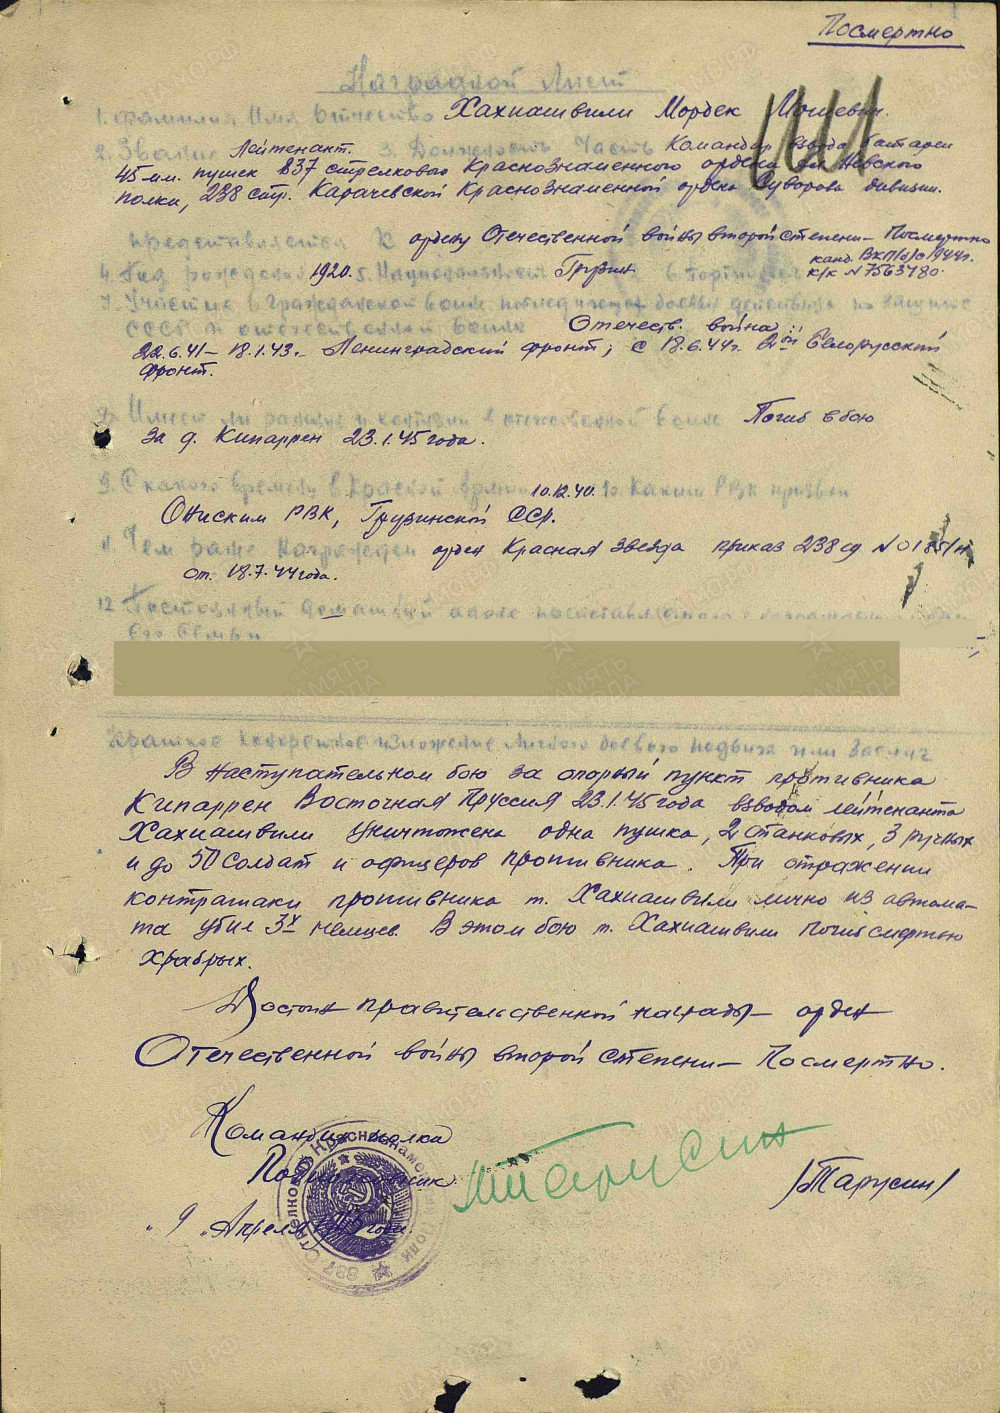 Посмертно
Наградной Лист
1. Фамилия Имя Отчество Хахиашвили Мордек Мошевич.
2. Звание Лейтенант. 3. Должность Часть Командир взвода батареи
45 мл. пушек 837 стрелкового Краснознаменного ордена Ал. Невского
полка, 238 стр. Карачевской Краснознаменной ордена Суворова дивизии.
представляется к ордену Отечественной войны второй степени - Посмертно
4. Год рождения 1920. 5. Национальность Грузин канд. ВКП(б) с 1944 г.
к/к N 7563780.
7. Участие в гражданской войне, последующих боевых действиях по защите
СССР и отечественной войне Отечеств. война:
22.6.41 - 18.1.43 г. Ленинградский фронт; с 18.6.44 г. 2ой Белорусский
фронт.
8. Имеет ли ранения и контузии в отечественной войне Погиб в бою
за д. Кипаррен 23.1.45 года.
9. С какого времени в Красной армии 10.12.40. 10. Каким РВК призван
Ониским РВК, Грузинской ССР.
11. Чем ранее награжден орден Красная звезда приказ 238 сд N
от 18.7.44 года.
12. Постоянный домашний адрес представляемого к награждению
его семьи
Краткое конкретное изложение личного боевого подвига или заслуг
В наступательном бою за опорый пункт противника
Кипаррен Восточная Пруссия 23.1.45 года взводом лейтенанта
Хахиашвили уничтожена одна пушка, 2 станковых, 3 ручных
и до 50 солдат и офицеров противника. При отражении
контратаки противника т. Хахиашвили лично из автома-
та убил 3х немцев. В этом бою т. Хахиашвили погиб смертью
храбрых.
Достоин правительственной награды - орден
Отечественной войны второй степени - Посмертно.
Командир полка
Подполковник
Тарусин /Тарусин/
" 9 " Апреля 1945 года.
837 Стрелковый Краснознаменный полк